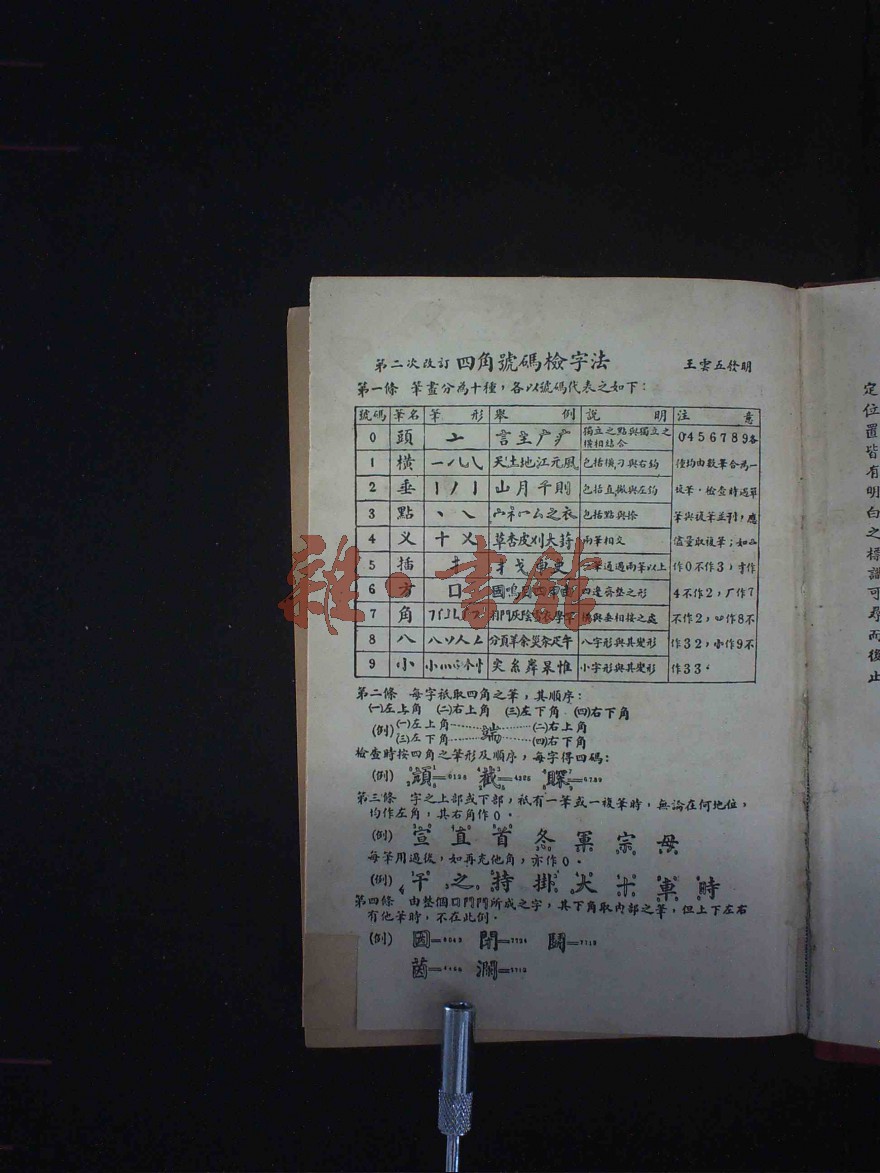 第二次改訂 四角號碼檢字法 王雲五發明
第一條 筆畫分為十種，各以號碼代表之如下：
號碼 筆名 筆形 舉例 說明 注意
0 頭 亠 言主广疒 獨立之點與獨立之橫相結合
1 橫 一 天土地江元風 包括橫刁與右鈎
2 垂 丨丿亅 山月千則 包括直撇與左鈎
3 點 丶 宀礻冖厶之衣 包括點與捺
4 乂 十乂 草杏皮刈大葑 兩筆相交
5 插 扌 通過兩筆以上
6 方 口 國鳴 四邊齊整之形
7 角 門灰陰 橫與垂相接之處
8 八 八丷人 分頁羊余災汆疋午 八字形與其變形
9 小 小 尖糸舞杲惟 小字形與其變形
0 4 5 6 7 8 9各
種均由數筆合為一
複筆。檢查時遇單
筆與複筆並列，應
儘量取複筆；如亠
作0不作3，寸作
4不作2，厂作7
不作2，丷作8不
作32，小作9不
作33。
第二條 每字祇取四角之筆，其順序：
(一)左上角 (二)右上角 (三)左下角 (四)右下角
(例) (一)左上角 端 (二)右上角
(三)左下角 (四)右下角
檢查時按四角之筆形及順序，每字得四碼：
(例) 顗=0128 截=4325 䁐=6789
第三條 字之上部或下部，祇有一筆或一複筆時，無論在何地位，
均作左角，其右角作0。
(例) 宣 直 首 冬 軍 宗 母
每筆用過後，如再充他角，亦作0。
(例) 干 之 持 掛 大 十 車 時
第四條 由整個囗門鬥所成之字，其下角取內部之筆，但上下左右
有他筆時，不在此例。
(例) 因=6043 閉=7724 鬭=7712
菌=4460 瀾=3712
定位置皆有明白之標識可尋而復止
雜·書館